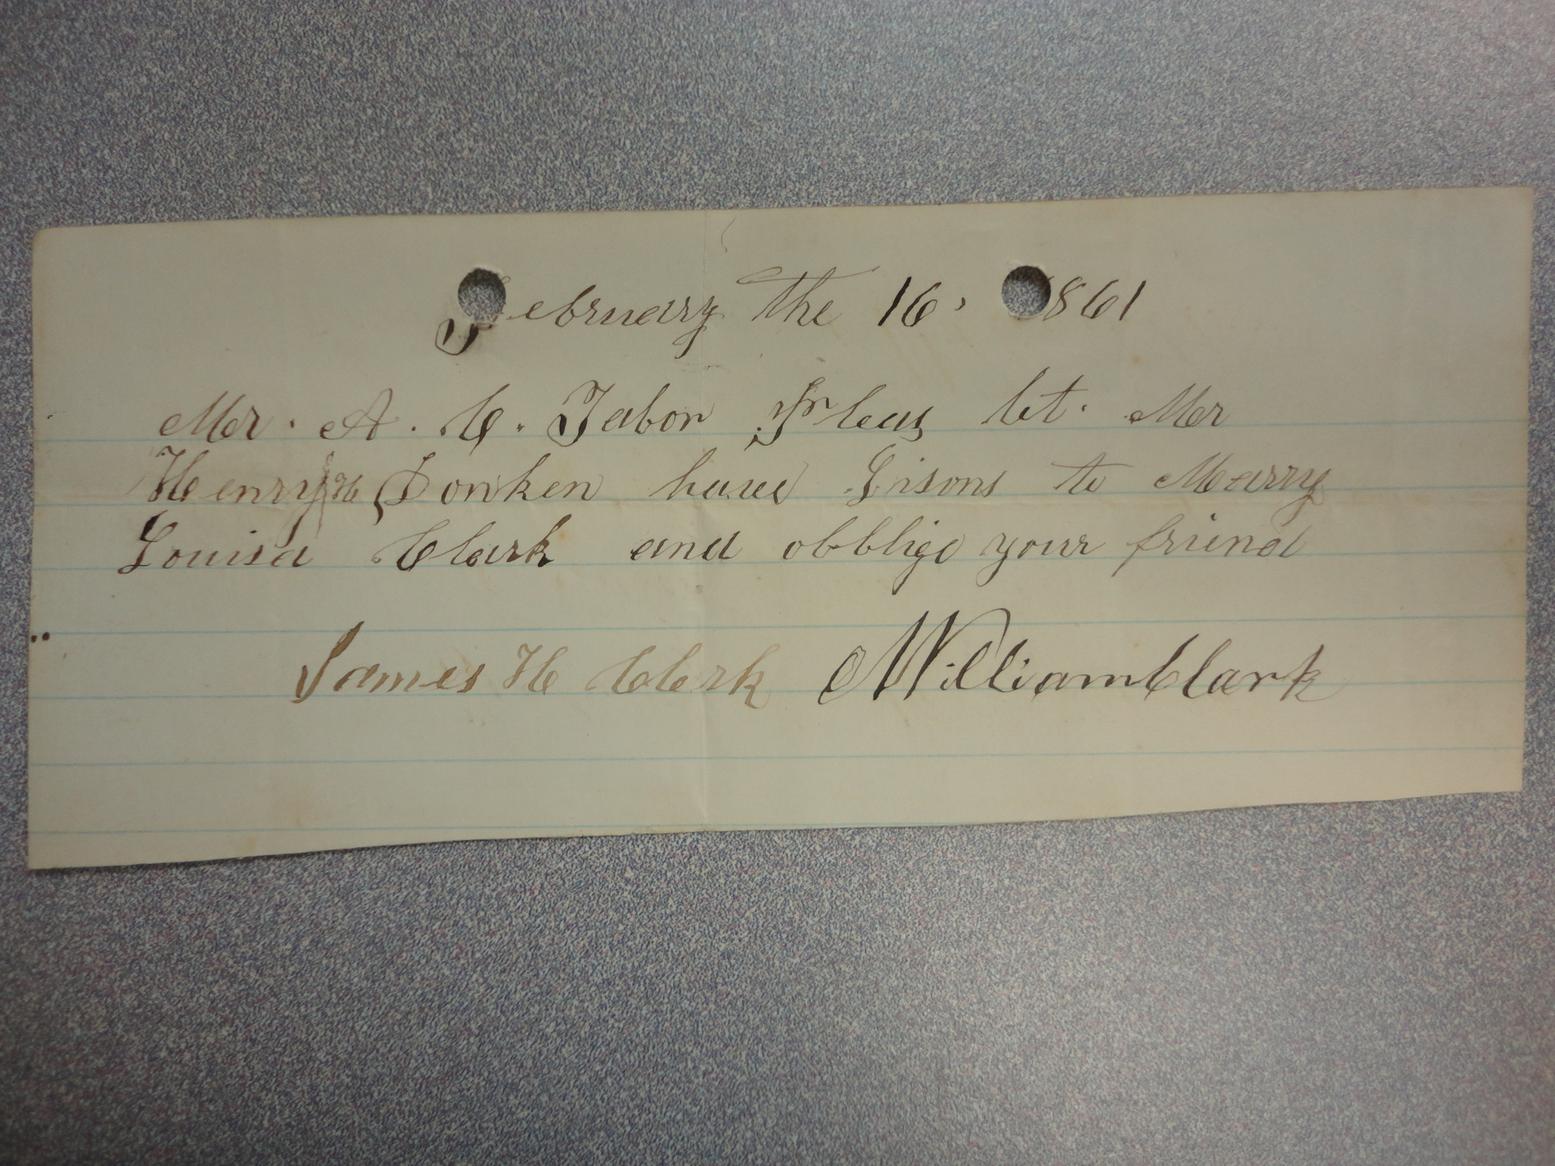 February the 16, 1861
Mr. A. C. Tabor Pleas let. Mr
Henry H Donken have Lisons to Marry
Louisa Clark and obbligo your friend
James H Clerk William Clark